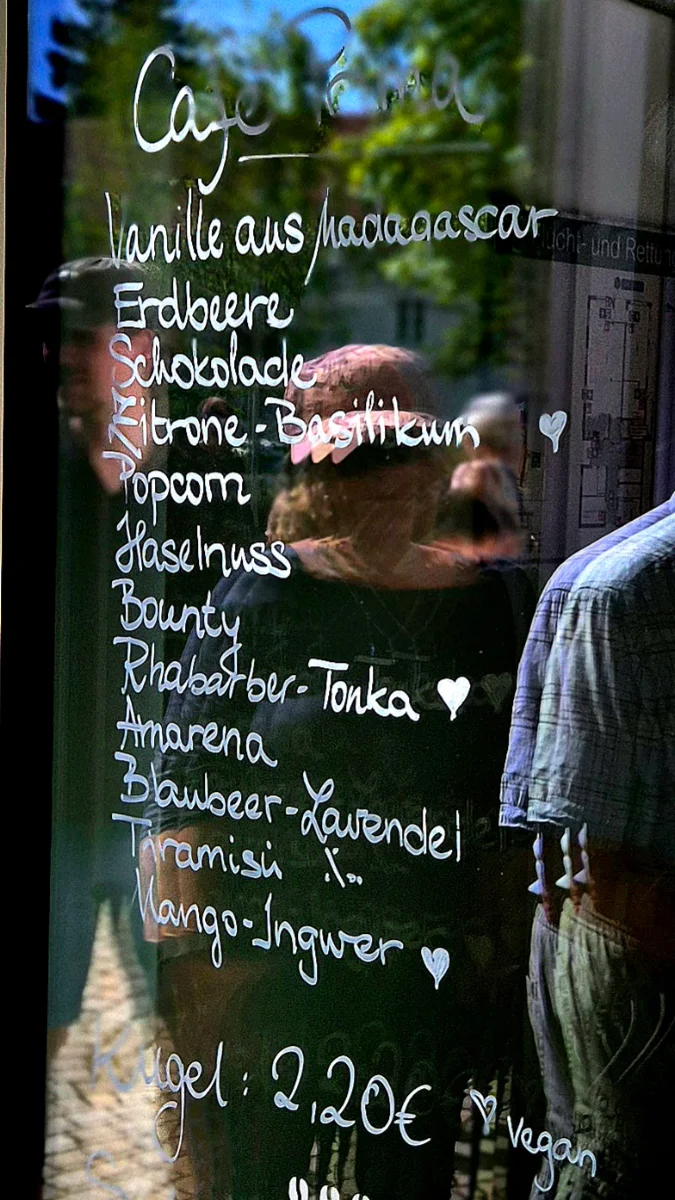 Cafe
Vanille aus Madagascar
Erdbeere
Schokolade
Zitrone-Basilikum ♥
Popcorn
Haselnuss
Bounty
Rhabarber-Tonka ♥
Amarena
Blaubeer-Lavendel
Tiramisu
Mango-Ingwer ♥
Kugel: 2,20€
♥ vegan
und Rettun